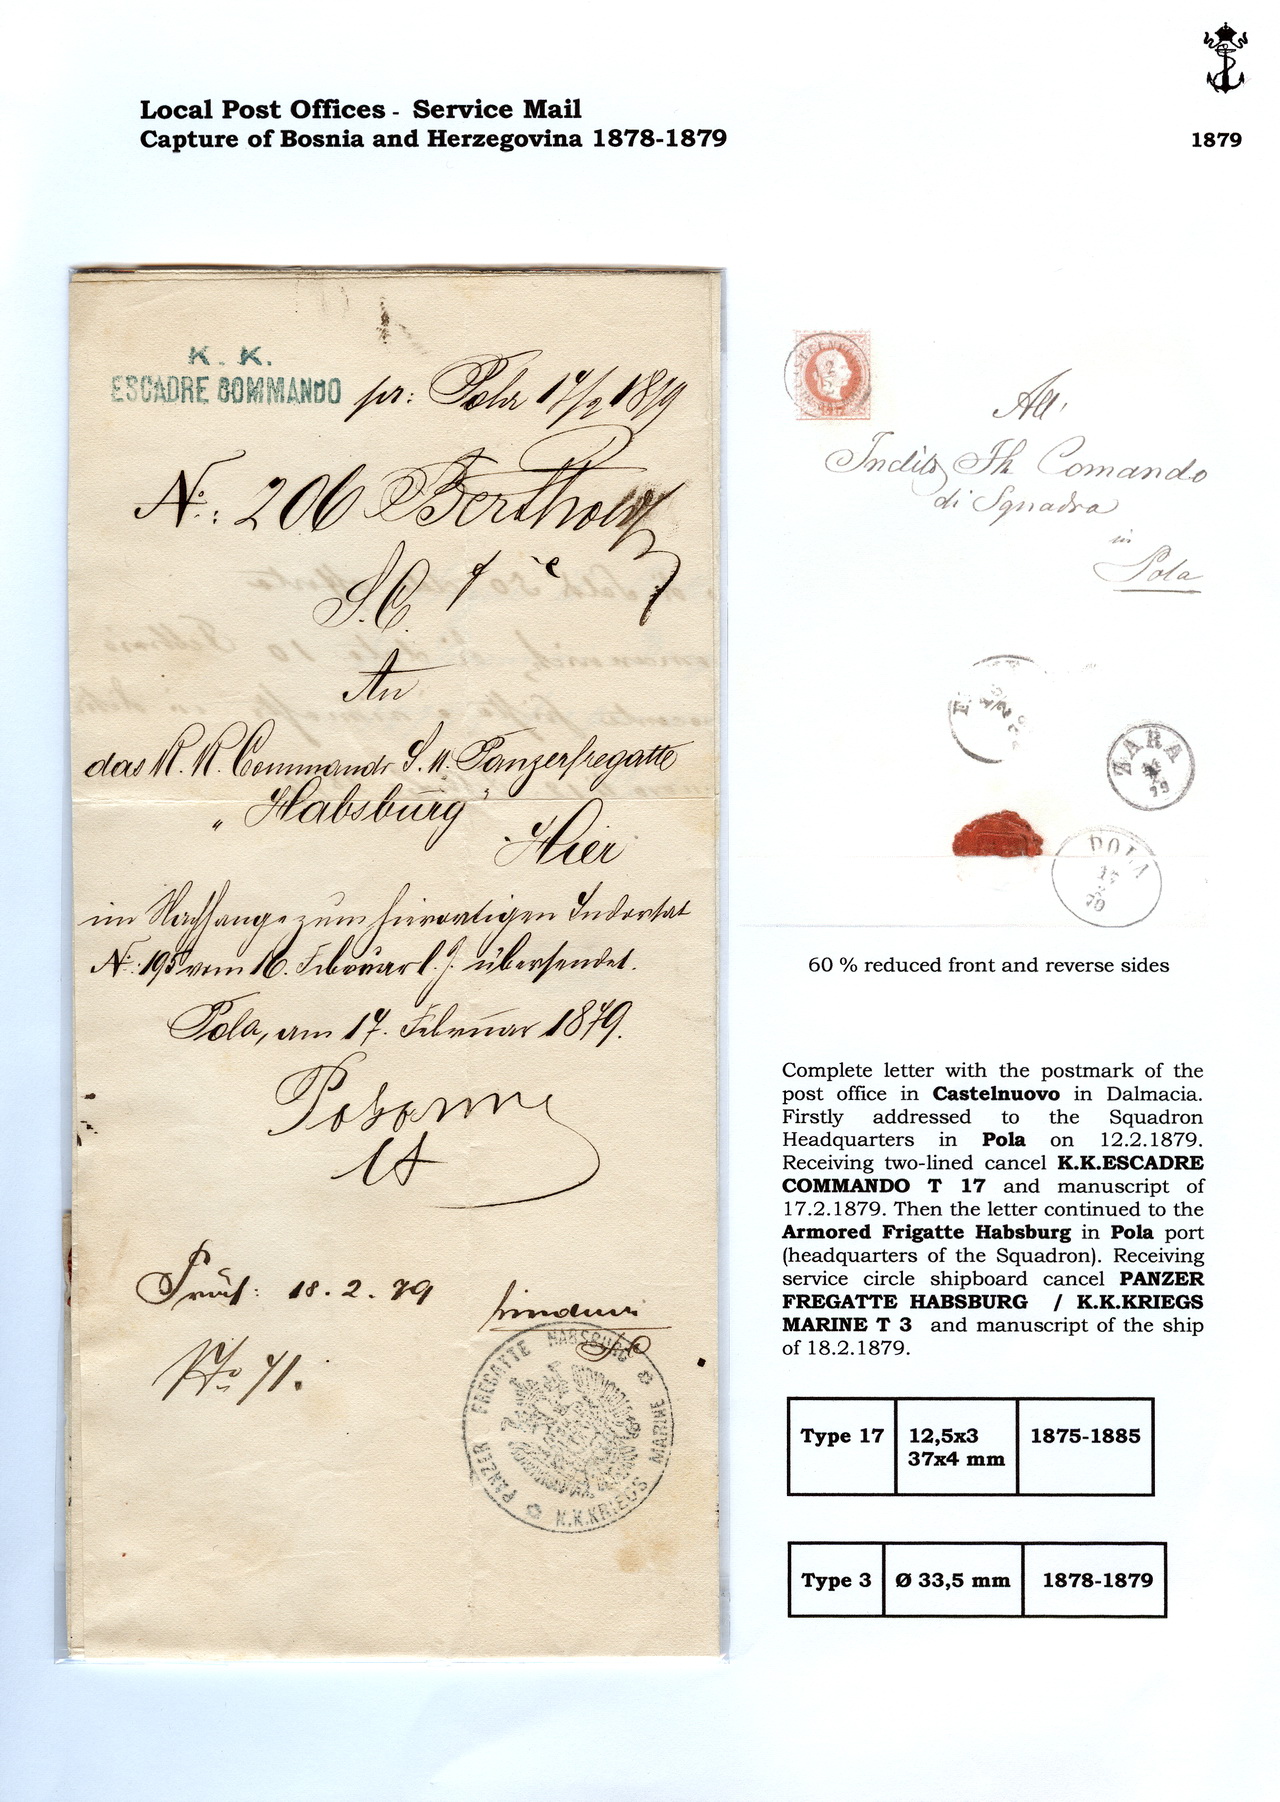 Local Post Offices - Service Mail
Capture of Bosnia and Herzegovina 1878-1879
1879
K. K.
ESCADRE COMMANDO
pr: Pola 17/2 1879
N°: 206
S.C.
An
das K. K. Commando S. M. Panzerfregatte
„Habsburg"
Hier
im Nachhange zum hierortigen Indorsat
N°: 195 vom 16. Februar l. J. übersendet.
Pola, am 17. Februar 1879.
18. 2. 79
71.
PANZER FREGATTE HABSBURG
K.K.KRIEGS MARINE
All'
Comando
di Squadra
in
Pola
ZARA
79
POLA
17
2
79
60 % reduced front and reverse sides
Complete letter with the postmark of the
post office in Castelnuovo in Dalmacia.
Firstly addressed to the Squadron
Headquarters in Pola on 12.2.1879.
Receiving two-lined cancel K.K.ESCADRE
COMMANDO T 17 and manuscript of
17.2.1879. Then the letter continued to the
Armored Frigatte Habsburg in Pola port
(headquarters of the Squadron). Receiving
service circle shipboard cancel PANZER
FREGATTE HABSBURG / K.K.KRIEGS
MARINE T 3 and manuscript of the ship
of 18.2.1879.
Type 17 12,5x3 1875-1885
37x4 mm
Type 3 Ø 33,5 mm 1878-1879